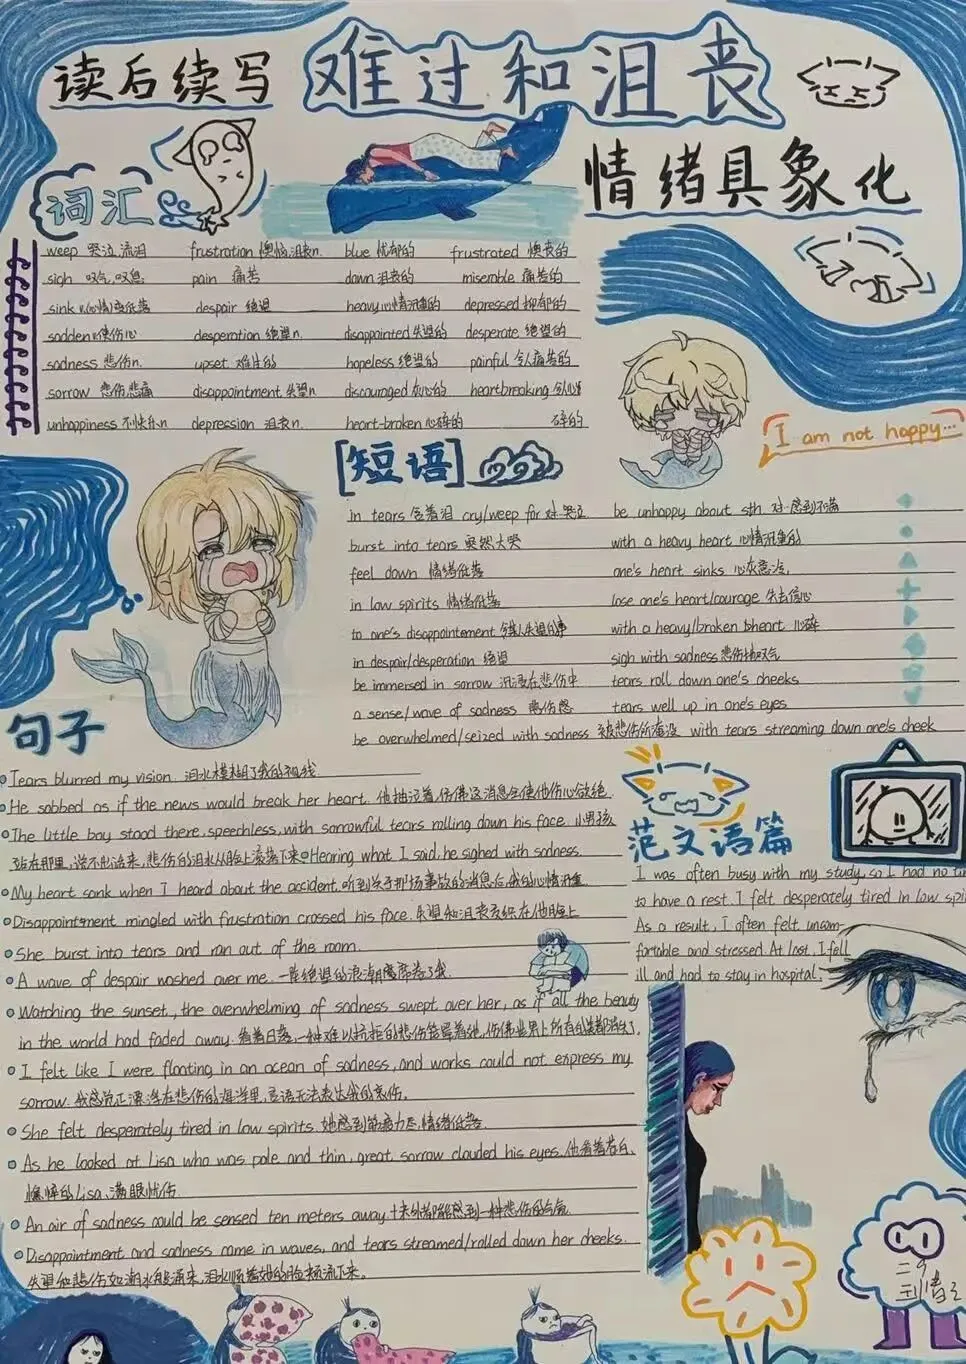 读后续写
难过和沮丧
情绪具象化
词汇
weep 哭泣,流泪 frustration 懊恼,沮丧n. blue 忧郁的 frustrated 懊丧的
sigh 叹气,叹息 pain 痛苦 down 沮丧的 misemble 痛苦的
sink v.(心情)变低落 despair 绝望 heavy 心情沉重的 depressed 抑郁的
sadden v.使伤心 desperation 绝望n. disappointed 失望的 desperate 绝望的
sadness 悲伤n. upset 难过的 hopeless 绝望的 painful 令人痛苦的
sorrow 悲伤,悲痛 disappointment 失望n. discouraged 灰心的 heartbreaking 令心
unhappiness 不快乐n depression 沮丧n. heart-broken 心碎的 碎的
I am not happy...
[短语]
in tears 含着泪 cry/weep for 对·哭泣 be unhappy about sth 对·感到不满
burst into tears 突然大哭 with a heavy heart 心情沉重的
feel down 情绪低落 one's heart sinks 心灰意冷,
in low spirits 情绪低落 lose one's heart/courage 失去信心
to one's disappointement 令某人失望的事 with a heavy/broken heart 心碎
in despair/desperation 绝望 sigh with sadness 悲伤地叹气
be immersed in sorrow 沉浸在悲伤中 tears roll down one's cheeks
a sense/wave of sadness 悲伤感 tears well up in one's eyes
be overwhelmed/seized with sadness 被悲伤所淹没 with tears streaming down one's cheek
句子
Tears blurred my vision. 泪水模糊了我的视线
He sobbed as if the news would break her heart. 他抽泣着,仿佛这消息会使他伤心欲绝.
The little boy stood there, speechless, with sorrowful tears rolling down his face. 小男孩
站在那里,说不出话来,悲伤的泪水从脸上滚落下来 Hearing what I said, he sighed with sadness.
My heart sank when I heard about the accident. 听到关于那场事故的消息后,我的心情沉重.
Disappointment mingled with frustration crossed his face. 失望和沮丧交织在他脸上
She burst into tears and ran out of the room.
A wave of despair washed over me. 一阵绝望的浪潮席卷了我.
Watching the sunset, the overwhelming of sadness swept over her, as if all the beauty
in the world had faded away. 看着日落,一种难以抗拒的悲伤笼罩着她,仿佛世界上所有的美都消失了.
I felt like I were floating in an ocean of sadness, and works could not express my
sorrow. 我感觉正漂浮在悲伤的海洋里,言语无法表达我的哀伤.
She felt desperately tired in low spirits. 她感到筋疲力尽,情绪低落.
As he looked at Lisa who was pale and thin, great sorrow clouded his eyes. 他看着苍白、
憔悴的Lisa,满眼忧伤.
An air of sadness could be sensed ten meters away 十米外都能感到一种悲伤的气氛
Disappointment and sadness came in waves, and tears streamed/rolled down her cheeks.
失望和悲伤如潮水般涌来,泪水顺着她的脸颊流下来。
范文语篇
I was often busy with my study, so I had no
to have a rest. I felt desperately tired in low
As a result, I often felt uncom-
fortable and stressed. At last, I fell
ill and had to stay in hospital.